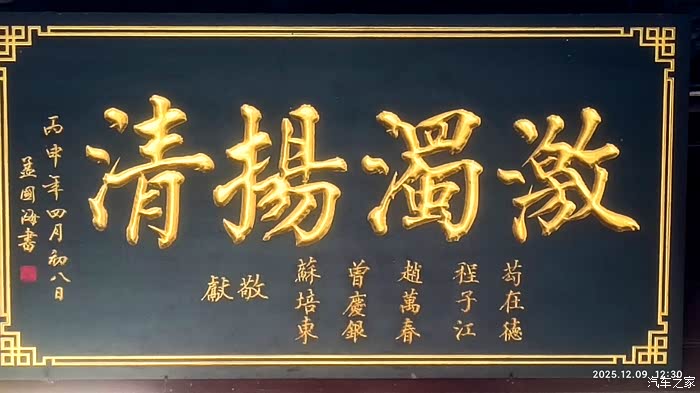 激濁揚清
苟在德
程子江
趙萬春
曾慶銀
蘇培東
敬獻
丙申年四月初八日
孟國海書
2025.12.09 12:30
汽车之家